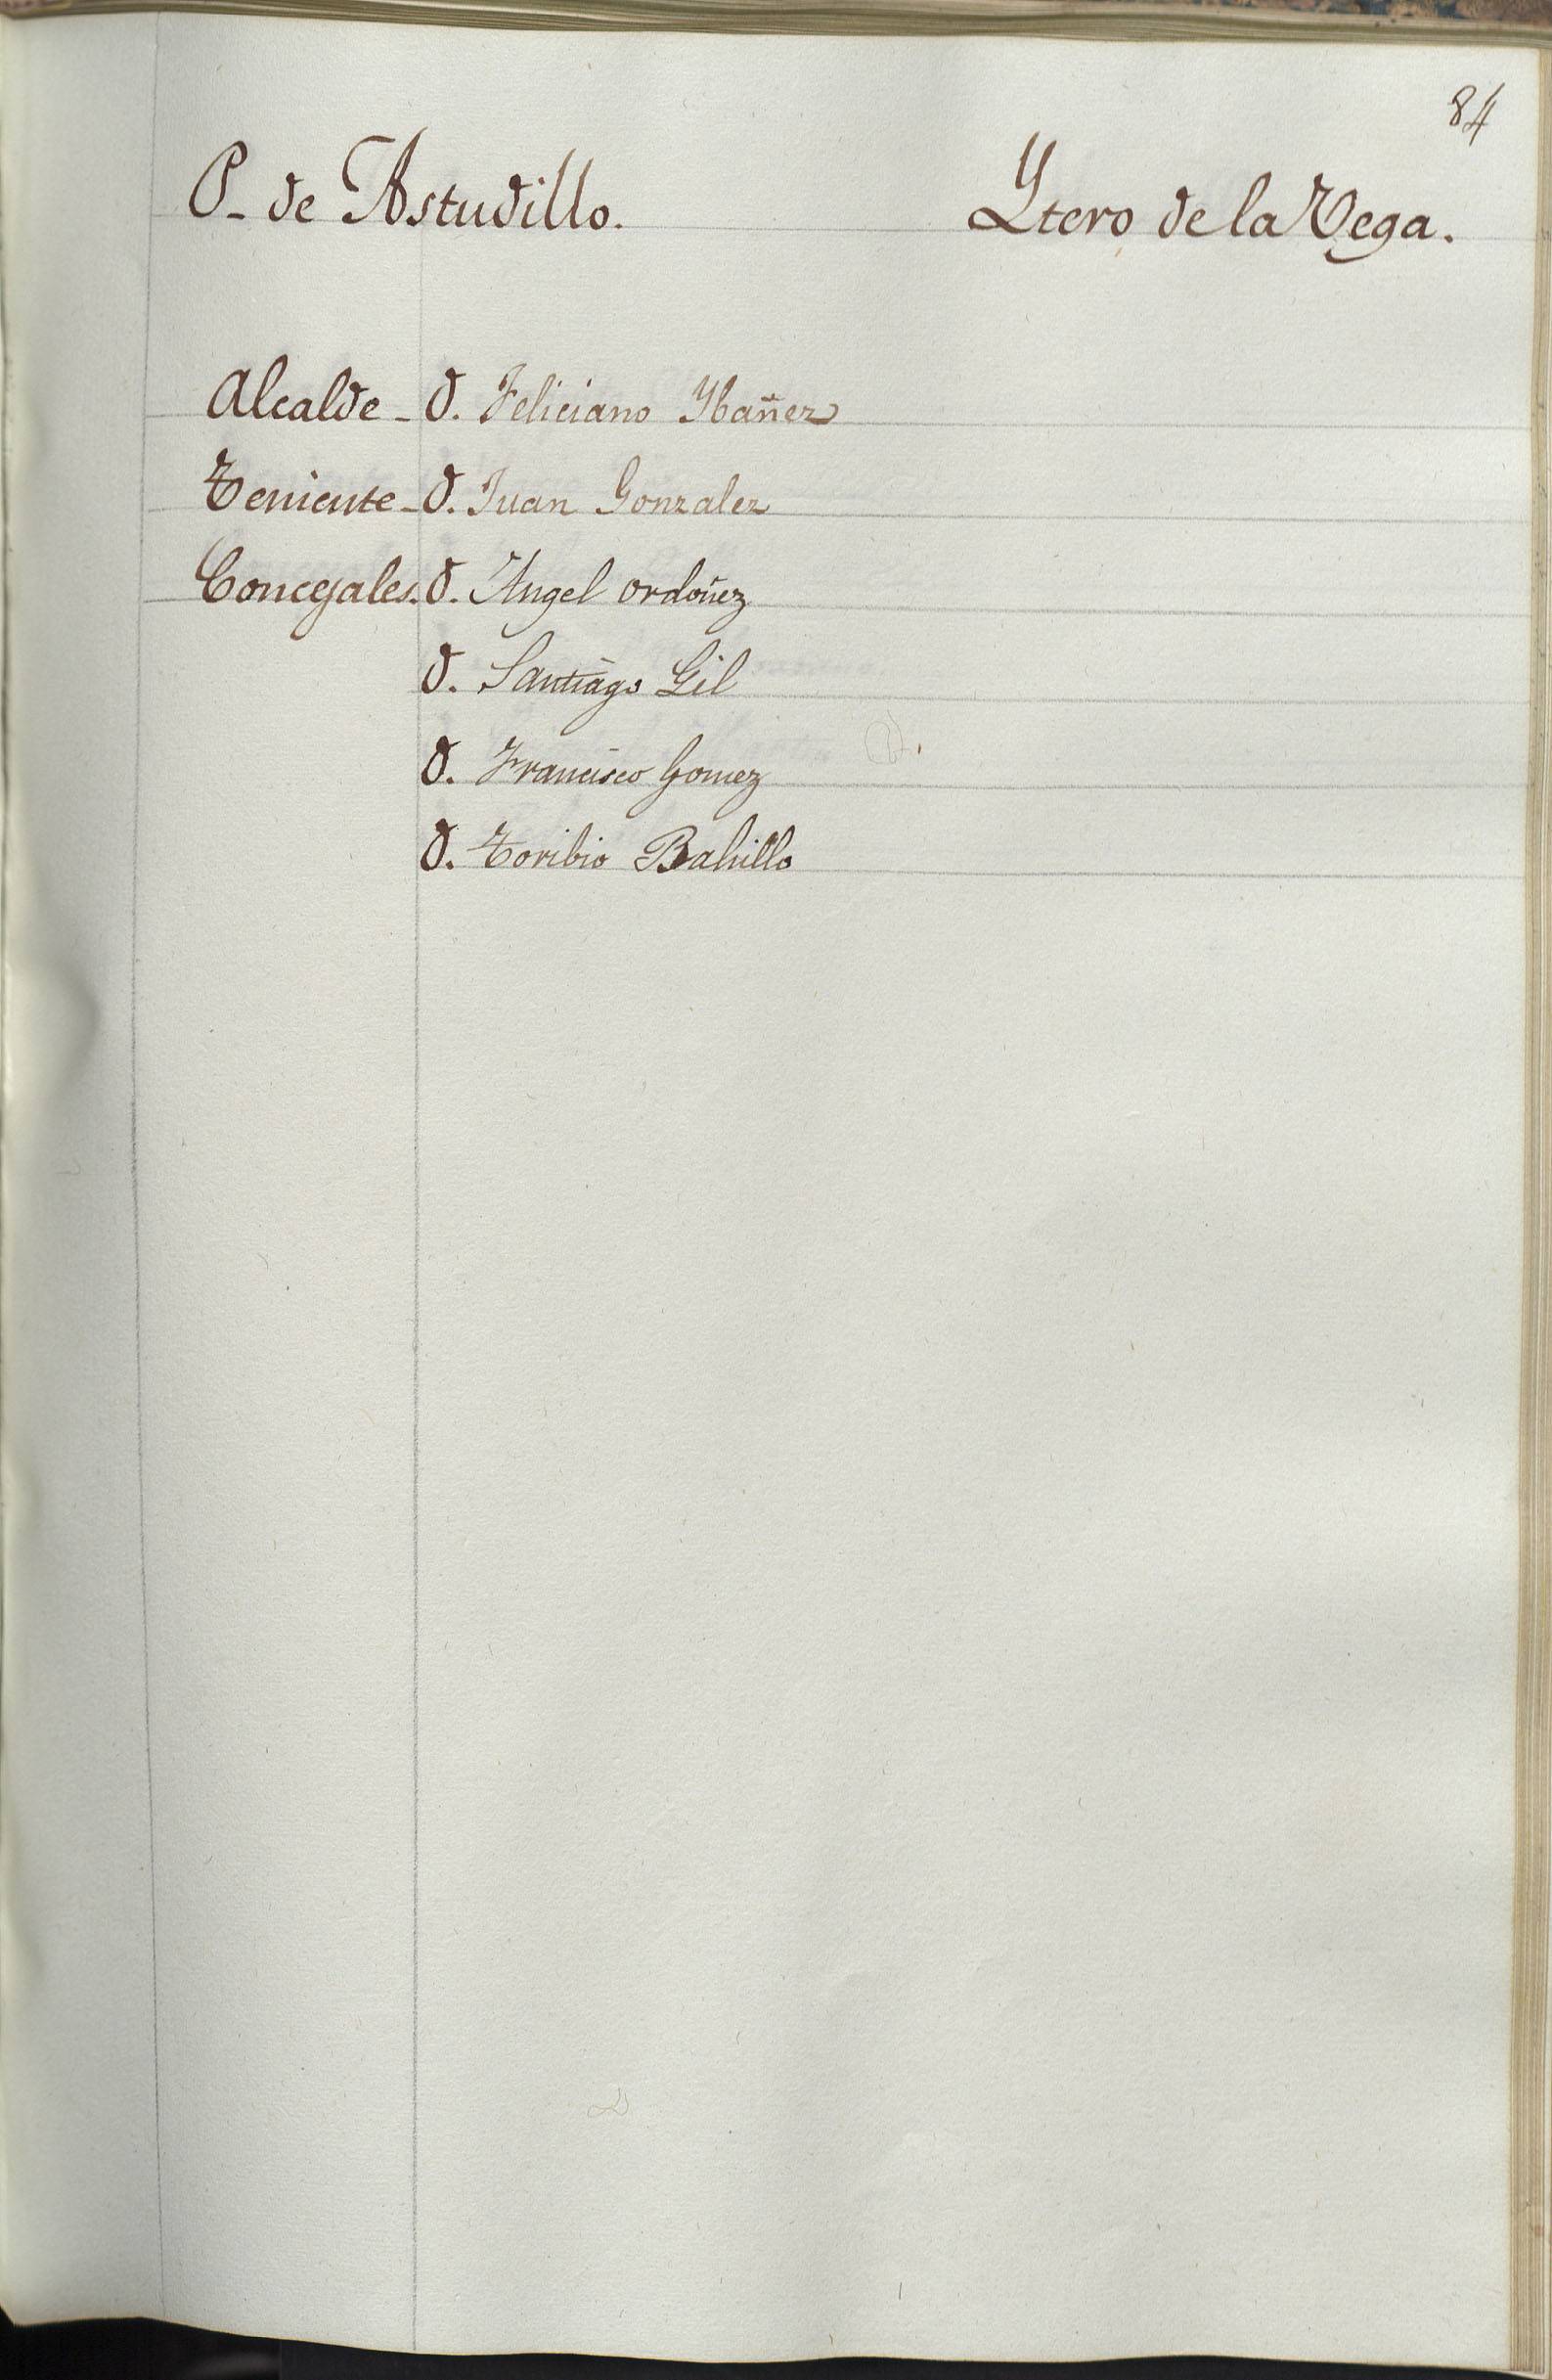 84
P. de Astudillo. Ytero de la Vega.
Alcalde - D. Feliciano Ybañez
Teniente - D. Juan Gonzalez
Concejales. D. Angel Ordoñez
D. Santiago Gil
D. Francisco Gomez
D. Toribio Bahillo